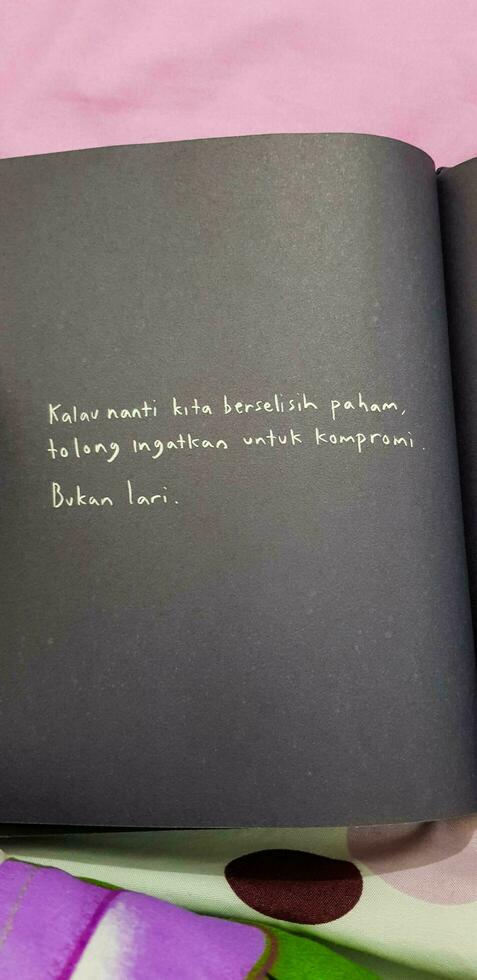 Kalau nanti kita berselisih paham,
tolong ingatkan untuk kompromi.
Bukan lari.